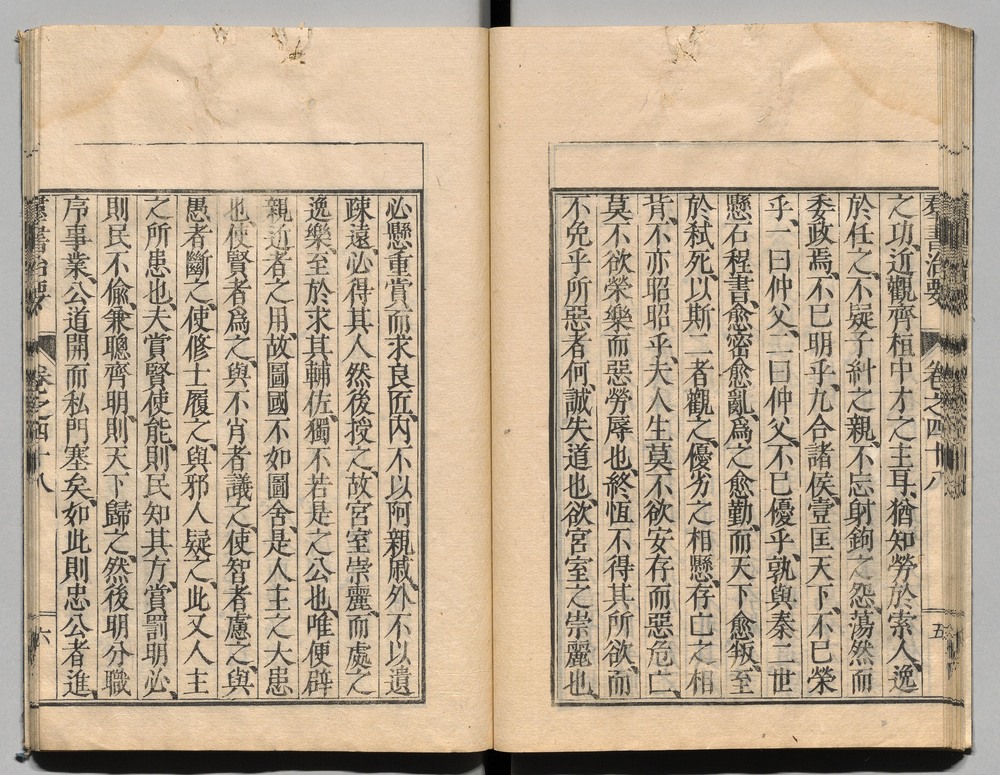 羣書治要 卷之四十八 五
之功、近觀齊桓中才之主耳、猶知勞於索人、逸
於任之、不疑子糾之親、不忘射鉤之怨、蕩然而
委政焉、不已明乎、九合諸侯、壹匡天下、不已榮
乎、一曰仲父、二曰仲父、不已優乎、孰與秦二世
懸石程書、愈密愈亂、爲之愈勤、而天下愈叛、至
於弑死、以斯二者觀之、優劣之相懸、存亡之相
背、不亦昭昭乎、夫人生莫不欲安存而惡危亡、
莫不欲榮樂而惡勞辱也、終恆不得其所欲、而
不免乎所惡者何、誠失道也、欲宮室之崇麗也、
必懸重賞而求良匠、內不以阿親戚、外不以遺
疎遠、必得其人、然後授之、故宮室崇麗、而處之
逸樂、至於求其輔佐、獨不若是之公也、唯便辟
親近者之用、故圖國不如圖舍、是人主之大患
也、使賢者爲之、與不肖者議之、使智者慮之、與
愚者斷之、使修士履之、與邪人疑之、此又人主
之所患也、夫賞賢使能、則民知其方、賞罰明必、
則民不偷、兼聰齊明、則天下歸之、然後明分職
序事業、公道開而私門塞矣、如此則忠公者進、
羣書治要 卷之四十八 六